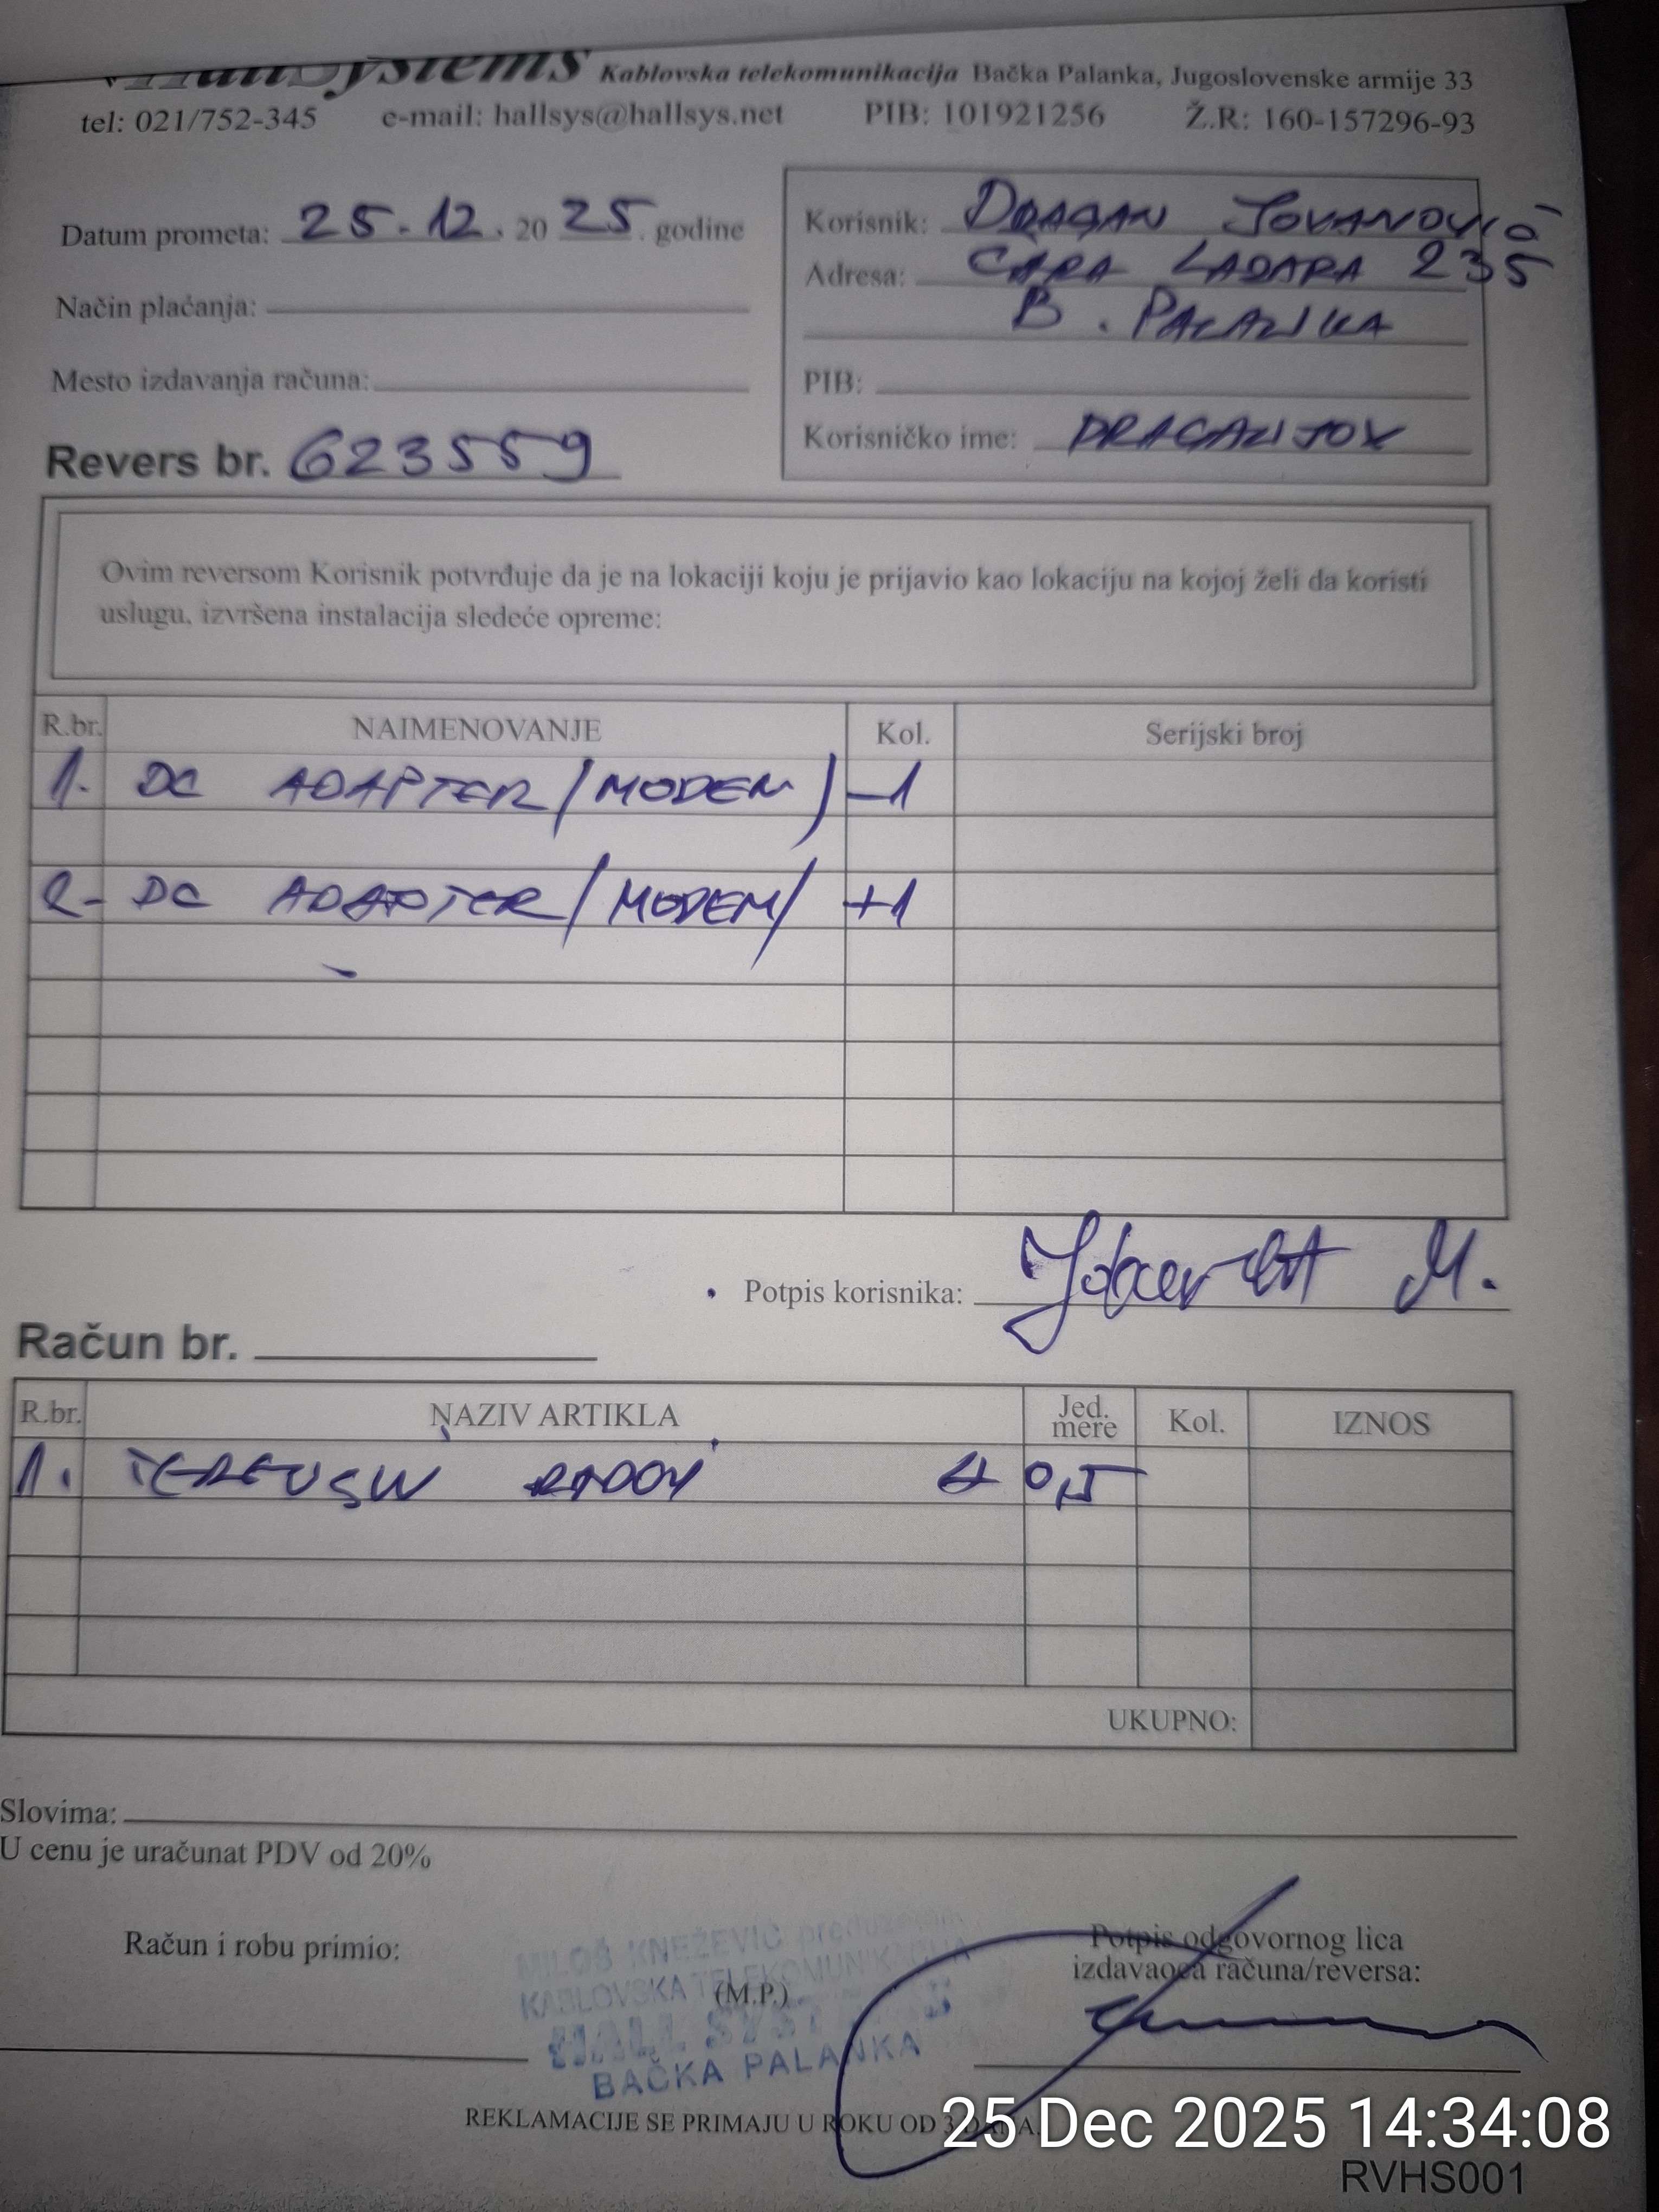 HallSystems Kablovska telekomunikacija Bačka Palanka, Jugoslovenske armije 33
tel: 021/752-345 e-mail: hallsys@hallsys.net PIB: 101921256 Ž.R: 160-157296-93
Datum prometa: 25.12.2025. godine
Način plaćanja:
Mesto izdavanja računa:
Revers br. 623559
Korisnik: DRAGAN JOVANOVIĆ
Adresa: CARA LAZARA 235
B. PALANKA
PIB:
Korisničko ime: DRAGANJOV
Ovim reversom Korisnik potvrđuje da je na lokaciji koju je prijavio kao lokaciju na kojoj želi da koristi
uslugu, izvršena instalacija sledeće opreme:
R.br. NAIMENOVANJE Kol. Serijski broj
1. DC ADAPTER (MODEM) -1
2- DC ADAPTER /MODEM/ +1
Potpis korisnika: M.
Račun br.
R.br. NAZIV ARTIKLA Jed. mere Kol. IZNOS
1. 0,5
UKUPNO:
Slovima:
U cenu je uračunat PDV od 20%
Računi robu primio:
MILOŠ KNEŽEVIĆ preduzetnik
KABLOVSKA TELEKOMUNIKACIJA
(M.P.)
HALL SYSTEMS
BAČKA PALANKA
Potpis odgovornog lica
izdavaoca računa/reversa:
REKLAMACIJE SE PRIMAJU U ROKU OD 3 DANA.
25 Dec 2025 14:34:08
RVHS001